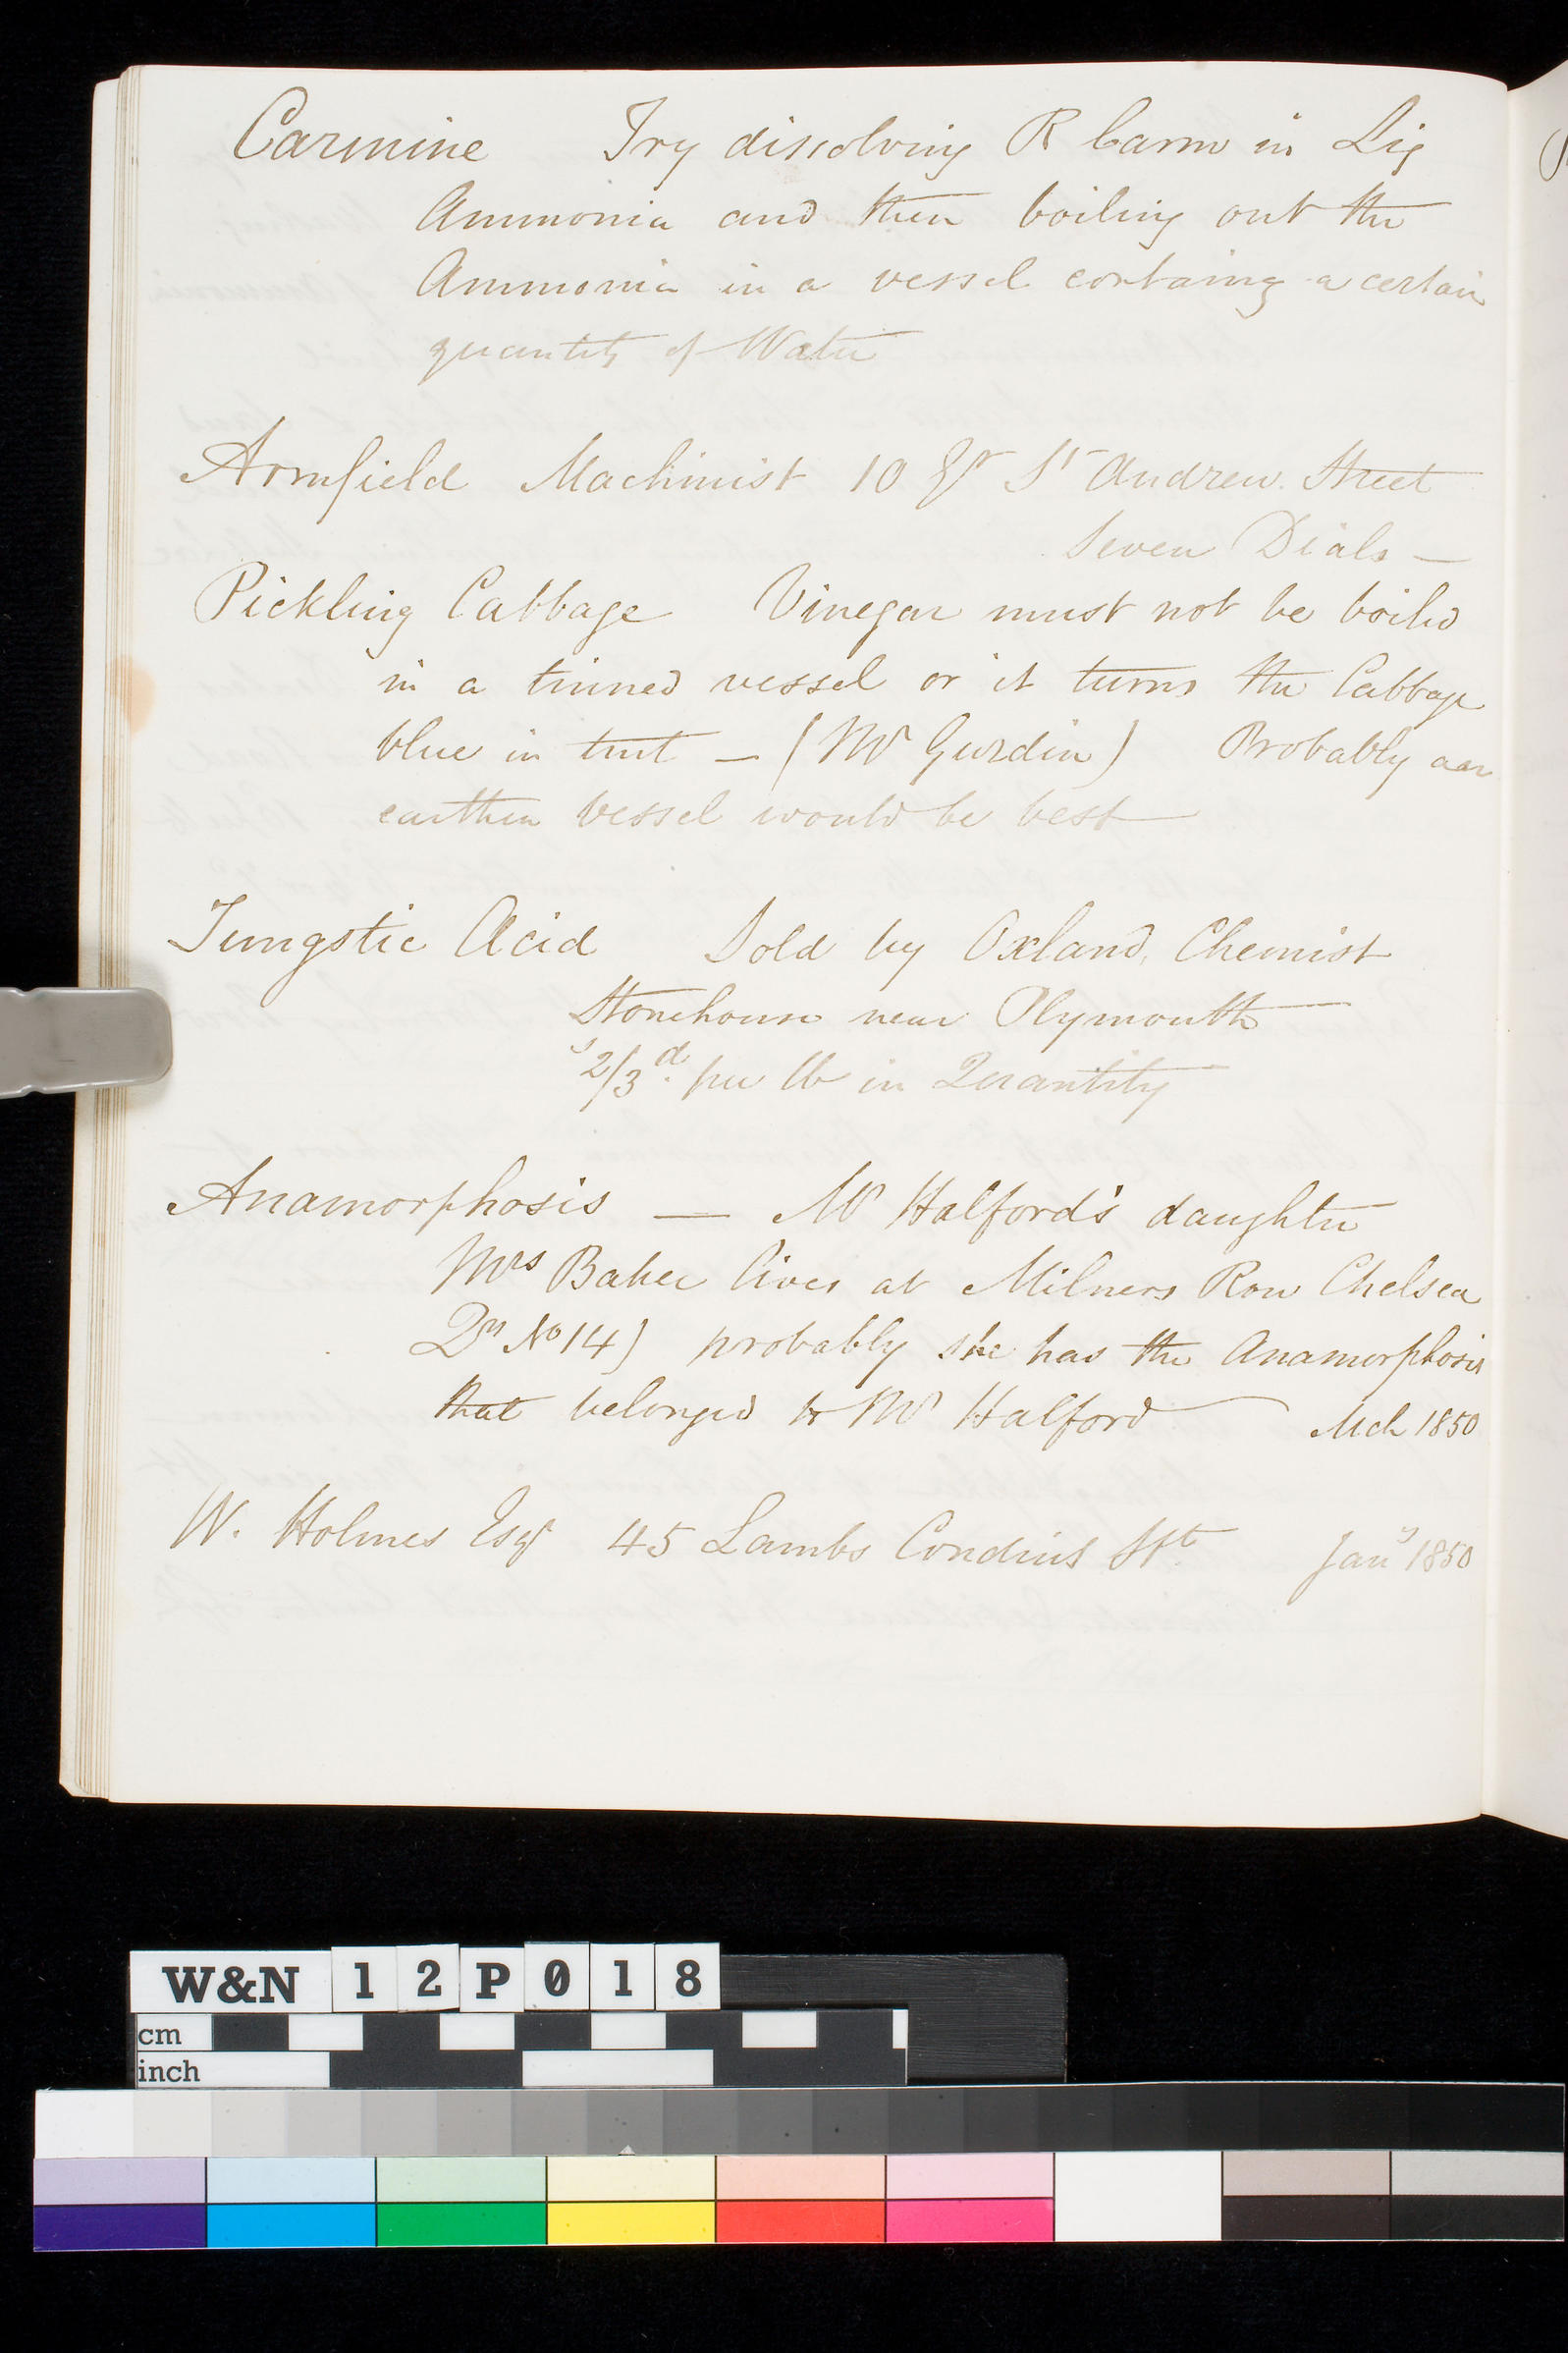 Carmine Try dissolving R Carm in Liq
Ammonia and then boiling out the
Ammonia in a vessel containg a certain
quantity of Water
Armfield Machinist 10 Gt St Andrew Street
Seven Dials —
Pickling Cabbage Vinegar must not be boiled
in a tinned vessel or it turns the Cabbage
blue in tint — (Mr Gurdin) Probably an
earthen vessel would be best
Tungstic Acid Sold by Oxland, Chemist
Stonehouse near Plymouth
s2/3d. per lb in Quantity
Anamorphosis — Mr Halford's daughter
Mrs Baker lives at Milners Row Chelsea
Qy No 14) probably she has the Anamorphosis
that belonged to Mr Halford Mch 1850
W. Holmes Esqr 45 Lambs Conduit Stt Jany 1850
W&N 12P018
cm
inch